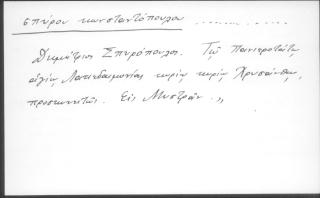 σπύρου κωνσταντόπουλου ..............
Δημήτριος Σπυρόπουλος. Τῷ Πανιερωτάτῳ
ἁγίῳ Λακεδαιμονίας κυρίῳ κυρίῳ Χρυσάνθῳ,
προσκυνητῶς. Εἰς Μυστρᾶν. „